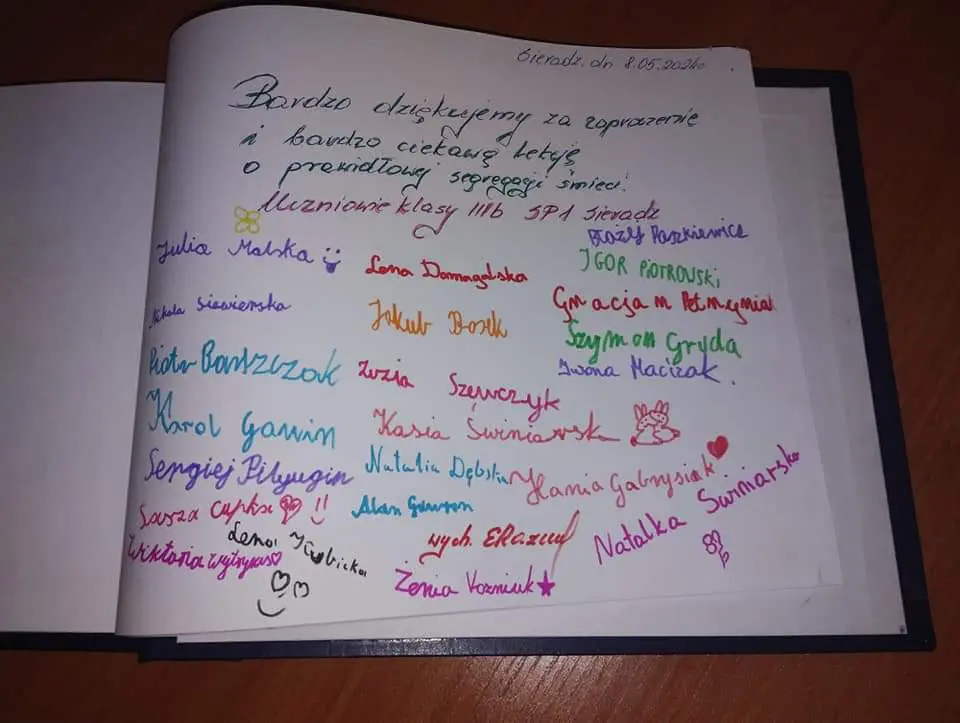 Sieradz. dn 8.05.2024r.
Bardzo dziękujemy za zaproszenie
i bardzo ciekawą lekcję
o prawidłowej segregacji śmieci!
Uczniowie klasy IIIb SP1 Sieradz
Julia Malska
Lena Domagalska
Błażej Paszkiewicz
IGOR PIOTROWSKI
Nikola Siewierska
Jakub Bosek
Szymon Gryda
Piotr Bartszczak
Zuzia Szewczyk
Iwona Macizak.
Karol Gawin
Kasia Świniarsk
Sergiej Pilyugin
Natalia Dębska
Hania Gabrysiak
Sasza Cupka !!
Alan Gawron
Natalka Świniarska
Lena
wych.
Wiktoria
Żenia Vozniuk